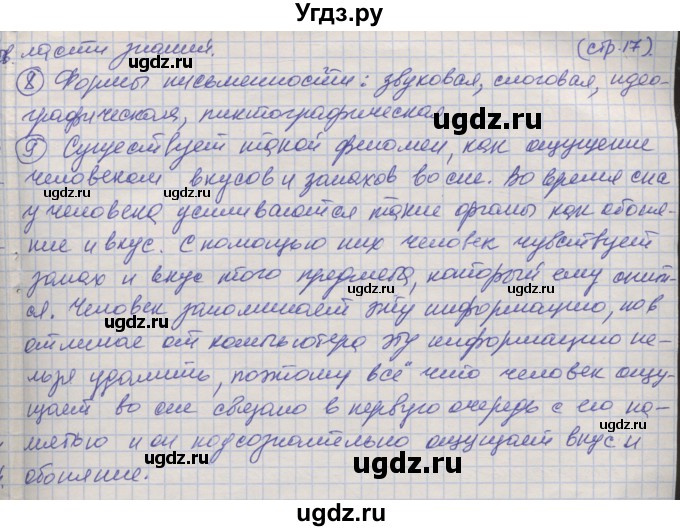 Угдз.ру
ласти знаний. (стр.17).
8 Формы письменности: звуковая, слоговая, идео-
графическая, пиктографическая
9 Существует такой феномен, как ощущение
человеком вкусов и запахов во сне. Во время сна
у человека усиливаются такие органы как обоня-
ние и вкус. С помощью них человек чувствует
запах и вкус того предмета, который ему снит-
ся. Человек запоминает эту информацию, но в
отличае от компьютера эту информацию не-
льзя удалить, поэтому всё что человек ощу-
щает во сне связано в первую очередь с его па-
мятью и он подсознательно ощущает вкус и
обоняние.
ugdz.ru
ugdz.ru
ugdz.ru
ugdz.ru
ugdz.ru
ugdz.ru
ugdz.ru
ugdz.ru
ugdz.ru
ugdz.ru
ugdz.ru
ugdz.ru
ugdz.ru
ugdz.ru